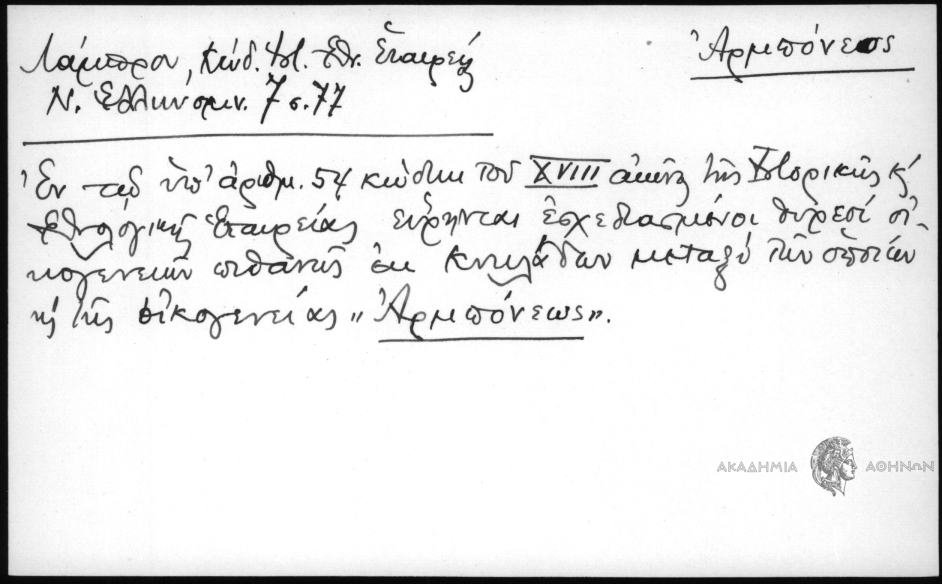 Λάμπρου, Κώδ. Ἱστ. Ἐθν. Ἑταιρείας
Ν. Ἑλληνομν. 7 σ. 77
Ἀρμπόνεως
Ἐν τῷ ὑπ' ἀριθμ. 54 κώδικι τοῦ XVIII αἰῶνος τῆς Ἱστορικῆς κ'
Ἐθνολογικῆς Ἑταιρείας εὕρηνται ἐσχεδιασμένοι θυρεοί οἰ-
κογενειῶν πιθανῶς ἐκ Κυκλάδων μεταξύ τῶν ὁποίων
κ' τῆς οἰκογενείας "Ἀρμπόνεως".
ΑΚΑΔΗΜΙΑ ΑΘΗΝΩΝ